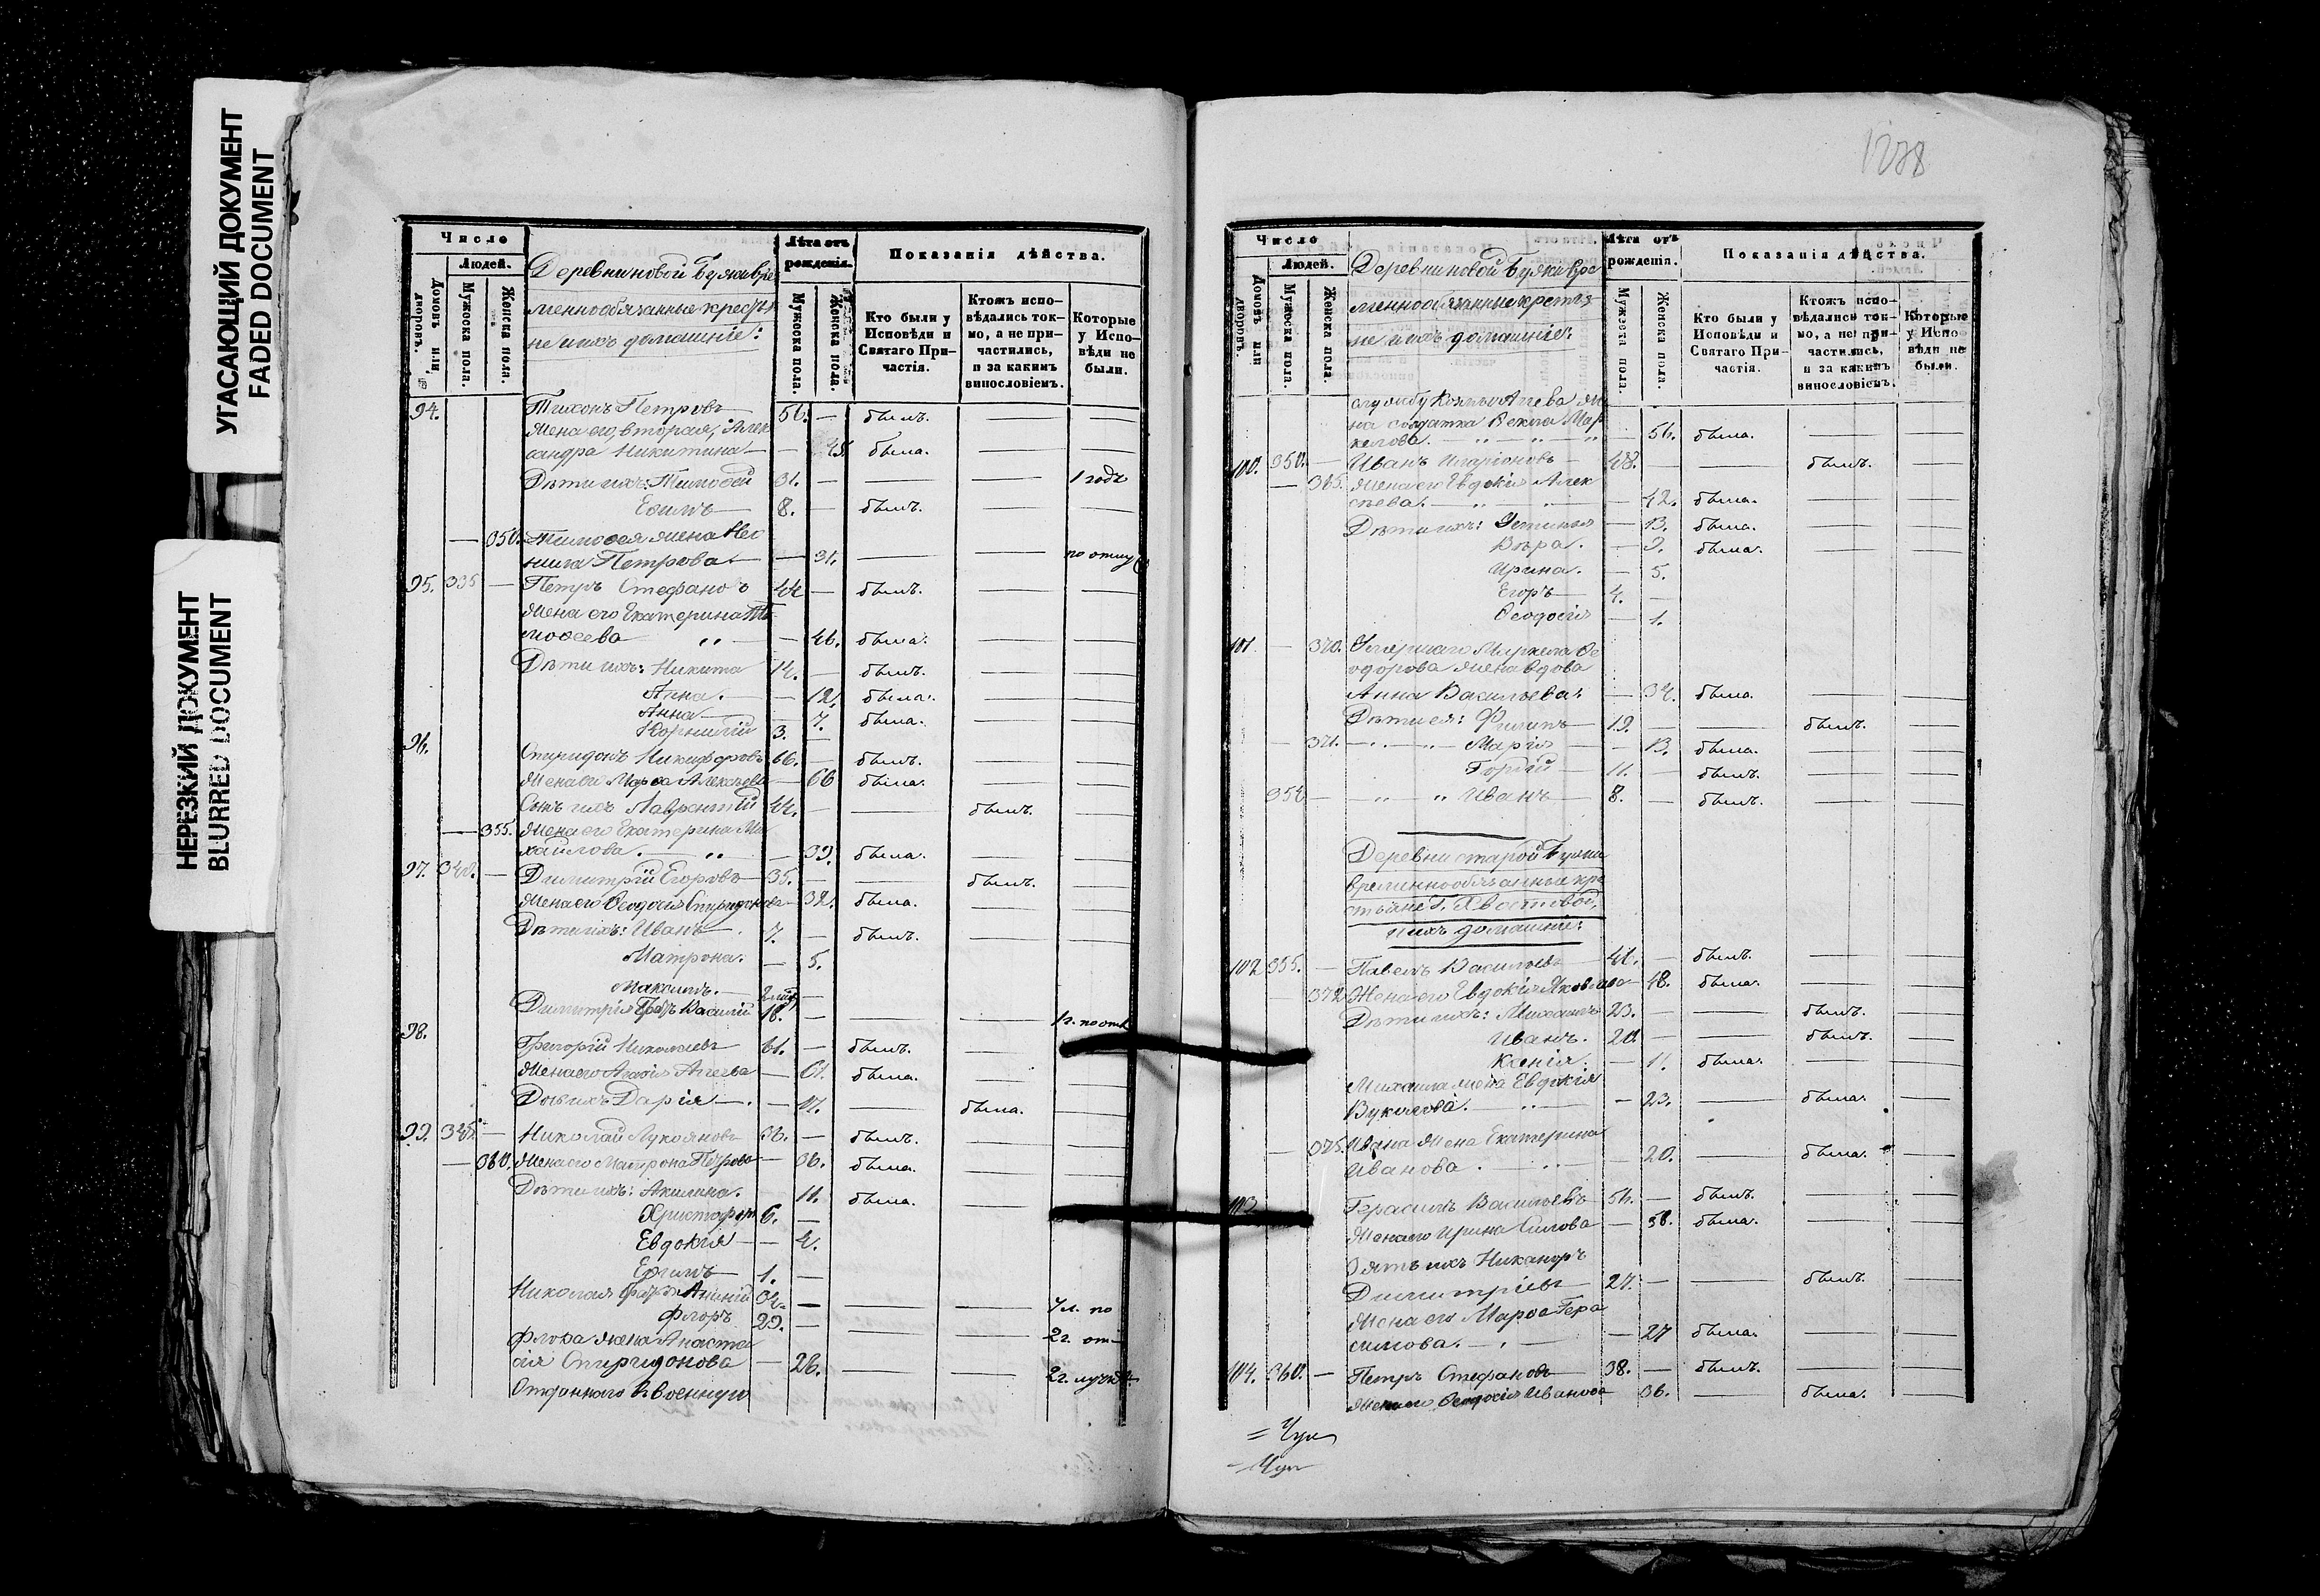 УГАСАЮЩИЙ ДОКУМЕНТ
FADED DOCUMENT
НЕРЕЗКИЙ ДОКУМЕНТ
BLURRED DOCUMENT
Число
Людей.
Домовъ или дворовъ.
Мужеска пола.
Женска пола.
Деревни новой Буянки вре
менно обязанные крестья
не и ихъ домашніе:
Лѣта отъ
рожденія.
Мужеска пола.
Женска пола.
Показанія дѣйства.
Кто были у
Исповѣди и
Святаго При-
частія.
Ктожъ испо-
вѣдались ток-
мо, а не при-
частились,
и за какимъ
винословіемъ.
Которые
у Испо-
вѣди не
были.
94. Тихонъ Петровъ 56. — былъ. — —
Жена его, вторая, Алек
сандра Никитина — 45. была. — —
Дѣти ихъ: Тимофей 31. — — — 1 годъ
Ефимъ 8. — былъ. — —
— 350. Тимофея жена
Петрова — 31. — —
95. 335 — Петръ Стефановъ 44 — былъ. — —
Жена его Екатерина Ти
мофеева „ — 46. была. — —
Дѣти ихъ: Никита 14. — былъ. — —
Анна. — 12. была. — —
Анна — 7. была. — —
Корнилій 3. —
96. Спиридонъ Никифоровъ 66. — былъ. — —
Жена его Марфа Алексѣева — 66 была. — —
Сынъ ихъ Лаврентій 44. — — былъ. —
— 355. Жена его Екатерина Ми
хайлова. — „ — 39. была. — —
97. 340. — Димитрій Егоровъ 35. — — былъ. —
Жена его Феодосія Спиридонова — 32. была. — —
Дѣти ихъ: Иванъ 7. — былъ. — —
Матрона. — 5.
Максимъ. —
Димитрія братъ Василій 18. — — —
98. Григорій Николаевъ 61. — былъ. — —
Жена его Агафія — 61. была. — —
Дочь ихъ Дарія — 17. — была. —
99. 345. — Николай Лукояновъ 36. — былъ. — —
— 360. Жена его Матрона Петрова — 36. была. — —
Дѣти ихъ: Акилина. 11. была. —
Христофоръ 6. —
Евдокія — 4.
Ефимъ 1. —
Николая братъ Ананій 32. — — —
Флоръ 29. — — — 2 г. от—
Флора жена Анаста
сія Спиридонова — 26. — —
Отданнаго въ военную
1278
Число
Людей.
Домовъ или дворовъ.
Мужеска пола.
Женска пола.
Деревни новой Буянки вре
менно обязанные крестья
не и ихъ домашніе:
Лѣта отъ
рожденія.
Мужеска пола.
Женска пола.
Показанія дѣйства.
Кто были у
Исповѣди и
Святаго При-
частія.
Ктожъ испо-
вѣдались ток-
мо, а не при-
частились,
и за какимъ
винословіемъ.
Которые
у Испо-
вѣди не
были.
службу же
на солдатка Фекла Мар
келова. — „ — „ — „ — 56. была. — —
100. 350. — Иванъ Иларіоновъ 48. — — былъ. —
— 365. Жена его Евдокія Алек
сѣева. — „ — 42. была. — —
Дѣти ихъ: Устинья — 13. была. — —
Вѣра. — 9. была. — —
Ирина. — 5.
Егоръ 4. —
Феодосія — 1.
101. — 370. Умершаго Маркела Фе
одорова жена вдова
Анна Васильева. — 34. была. — —
Дѣти ея: Филипъ 19. — — былъ. —
— 371. — „ — „ — Марія — 13. была. — —
Гордій 11. — былъ. — —
354. — „ „ Иванъ 8. — былъ. — —
Деревни старой Буянки
временно обязанные кре
стьяне г. Хвостовой,
и ихъ домашніе:
102 355. — Павелъ Васильевъ 41. — былъ. — —
— 372 Жена его Евдокія Яковлева 48. была. — —
Дѣти ихъ: Михаилъ 23. — — былъ. —
Иванъ. 20. — — былъ. —
Ксенія. — 11. была. — —
Михаила жена Евдокія
Вуколова. — „ — 23. — была. —
— 375. Ивана жена Екатерина
Иванова. — „ — 20. — была. —
103 Герасимъ Васильевъ 54. — былъ. — —
Жена его Ирина Силова — 58. была. — —
Зять ихъ Никаноръ
Димитріевъ 27. — — былъ. —
Жена его Марфа Гера
симова. — „ — 27 была. — —
104. 360. — Петръ Стефановъ 38. — былъ. — —
Жена его Феодосія Иванова 36. — была. —